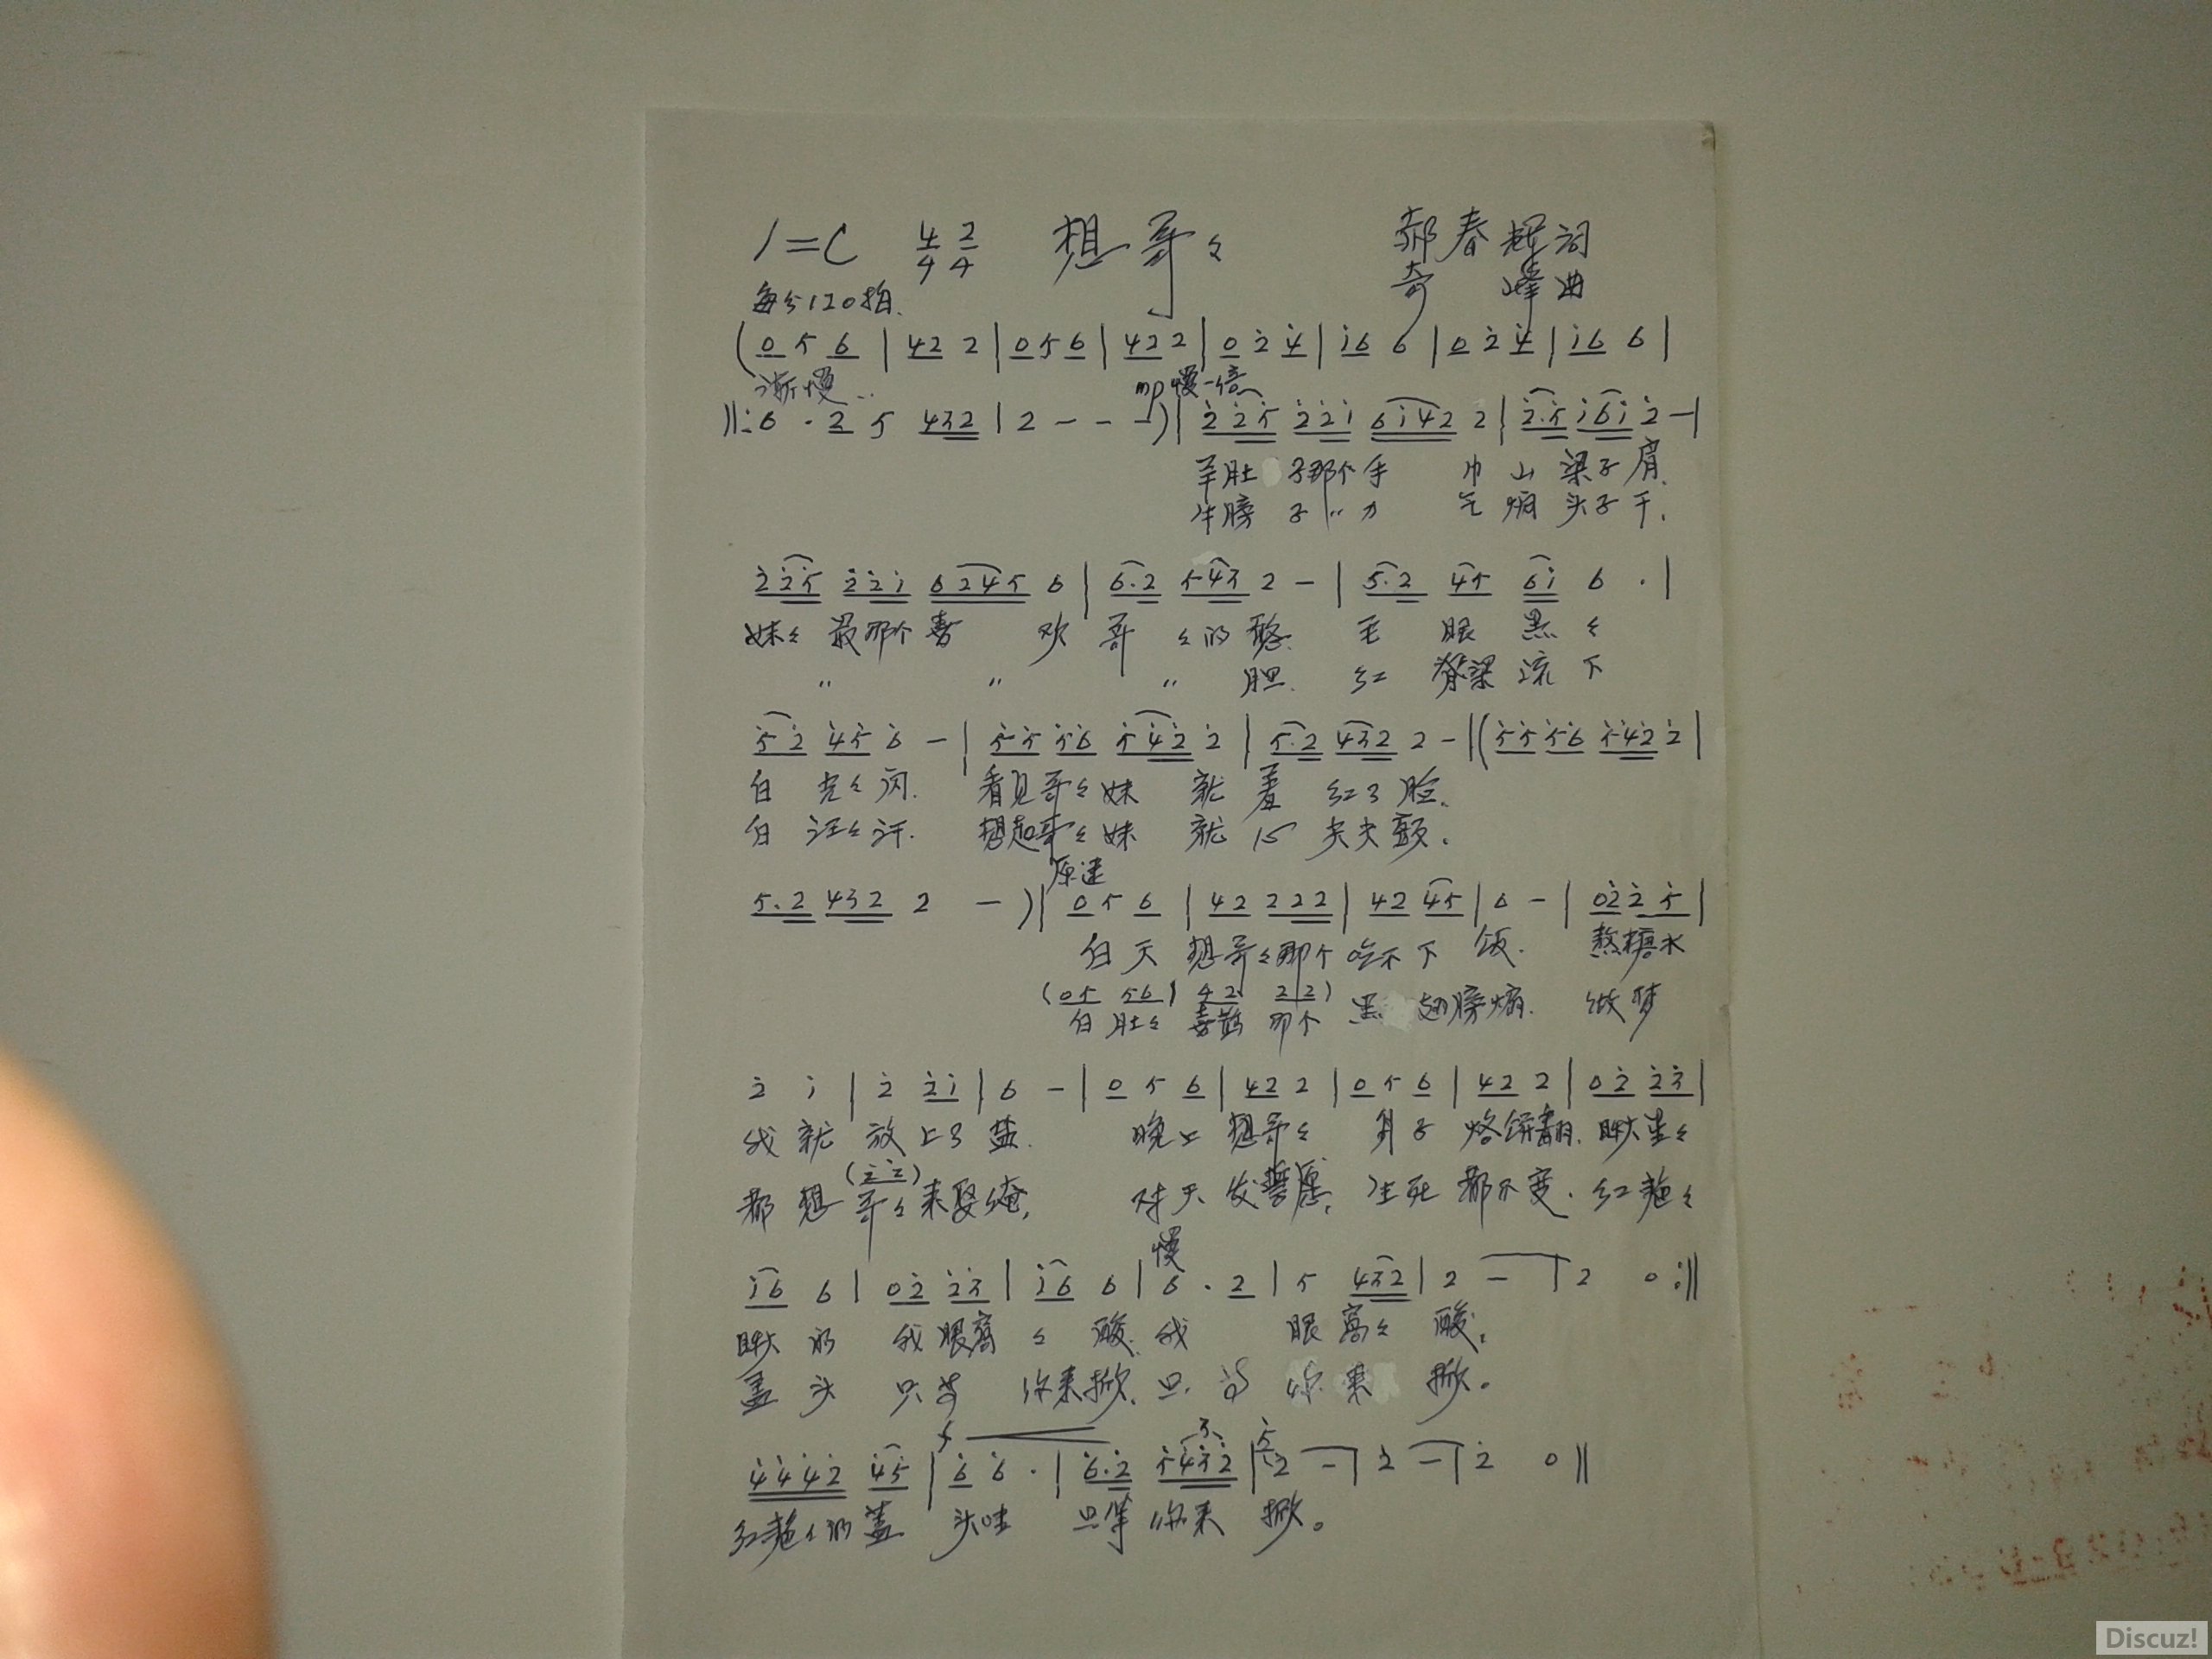 1=C 4/4 2/4 想哥々 郝春辉词
每分120拍. 奇峰曲
(0 5 6 | 42 2 | 0 5 6 | 42 2 | 0 2̇ 4̇ | 1̇6 6 | 0 2̇ 4̇ | 1̇6 6 |
渐慢.. mp慢一倍
‖: 6 · 2 5 432 | 2 - - -) | 2̇2̇5̇ 2̇2̇1̇ 61̇42 2 | 2̇.5̇ 1̇61̇ 2̇ - |
羊肚子那个手巾山梁子肩.
牛膀子〃力气烟头子干.
2̇2̇5̇ 2̇2̇1̇ 6245 6 | 6.2 543 2 - | 5.2 45 61̇ 6 · |
妹々最那个喜欢哥々的憨. 毛眼黑々
〃 〃 〃 胆. 红脊梁流下
5̇2̇ 4̇5̇ 6̇ - | 5̇5̇ 5̇6̇ 5̇4̇2̇ 2̇ | 5.2 432 2 - | (5̇5̇ 5̇6̇ 5̇4̇2̇ 2̇ |
白光々闪. 看见哥々妹就羞红了脸.
白汪々汗. 想起哥々妹就心尖尖颤.
原速
5.2 432 2 - ) | 0 5 6 | 42 222 | 42 45 | 6 - | 02̇ 2̇ 5̇ |
白天想哥々那个吃不下饭. 熬糖水
(05 56 | 42 22)
白肚々喜鹊那个黑翅膀煽. 做梦
2̇ 1̇ | 2̇ 2̇1̇ | 6 - | 0 5 6 | 42 2 | 0 5 6 | 42 2 | 02̇ 2̇3̇ |
我就放上了盐. 晚上想哥々身子烙饼翻. 瞅星々
(2̇2̇)
都想哥々来娶俺, 对天发誓愿, 生死都不变. 红艳々
慢
1̇6 6 | 02̇ 2̇3̇ | 1̇6 6 | 6 · 2 | 5 432 | 2 - | 2 0 :‖
瞅的我眼窝々酸. 我眼窝々酸.
盖头只等你来掀. 只等你来掀。
f 3 5̇
4̇4̇4̇2̇ 4̇5̇ | 6̇ 6̇ · | 6̇.2̇ 5̇4̇3̇2̇ | 2̇ - | 2̇ - | 2̇ 0 ‖
红艳々的盖头哇只等你来掀。
Discuz!